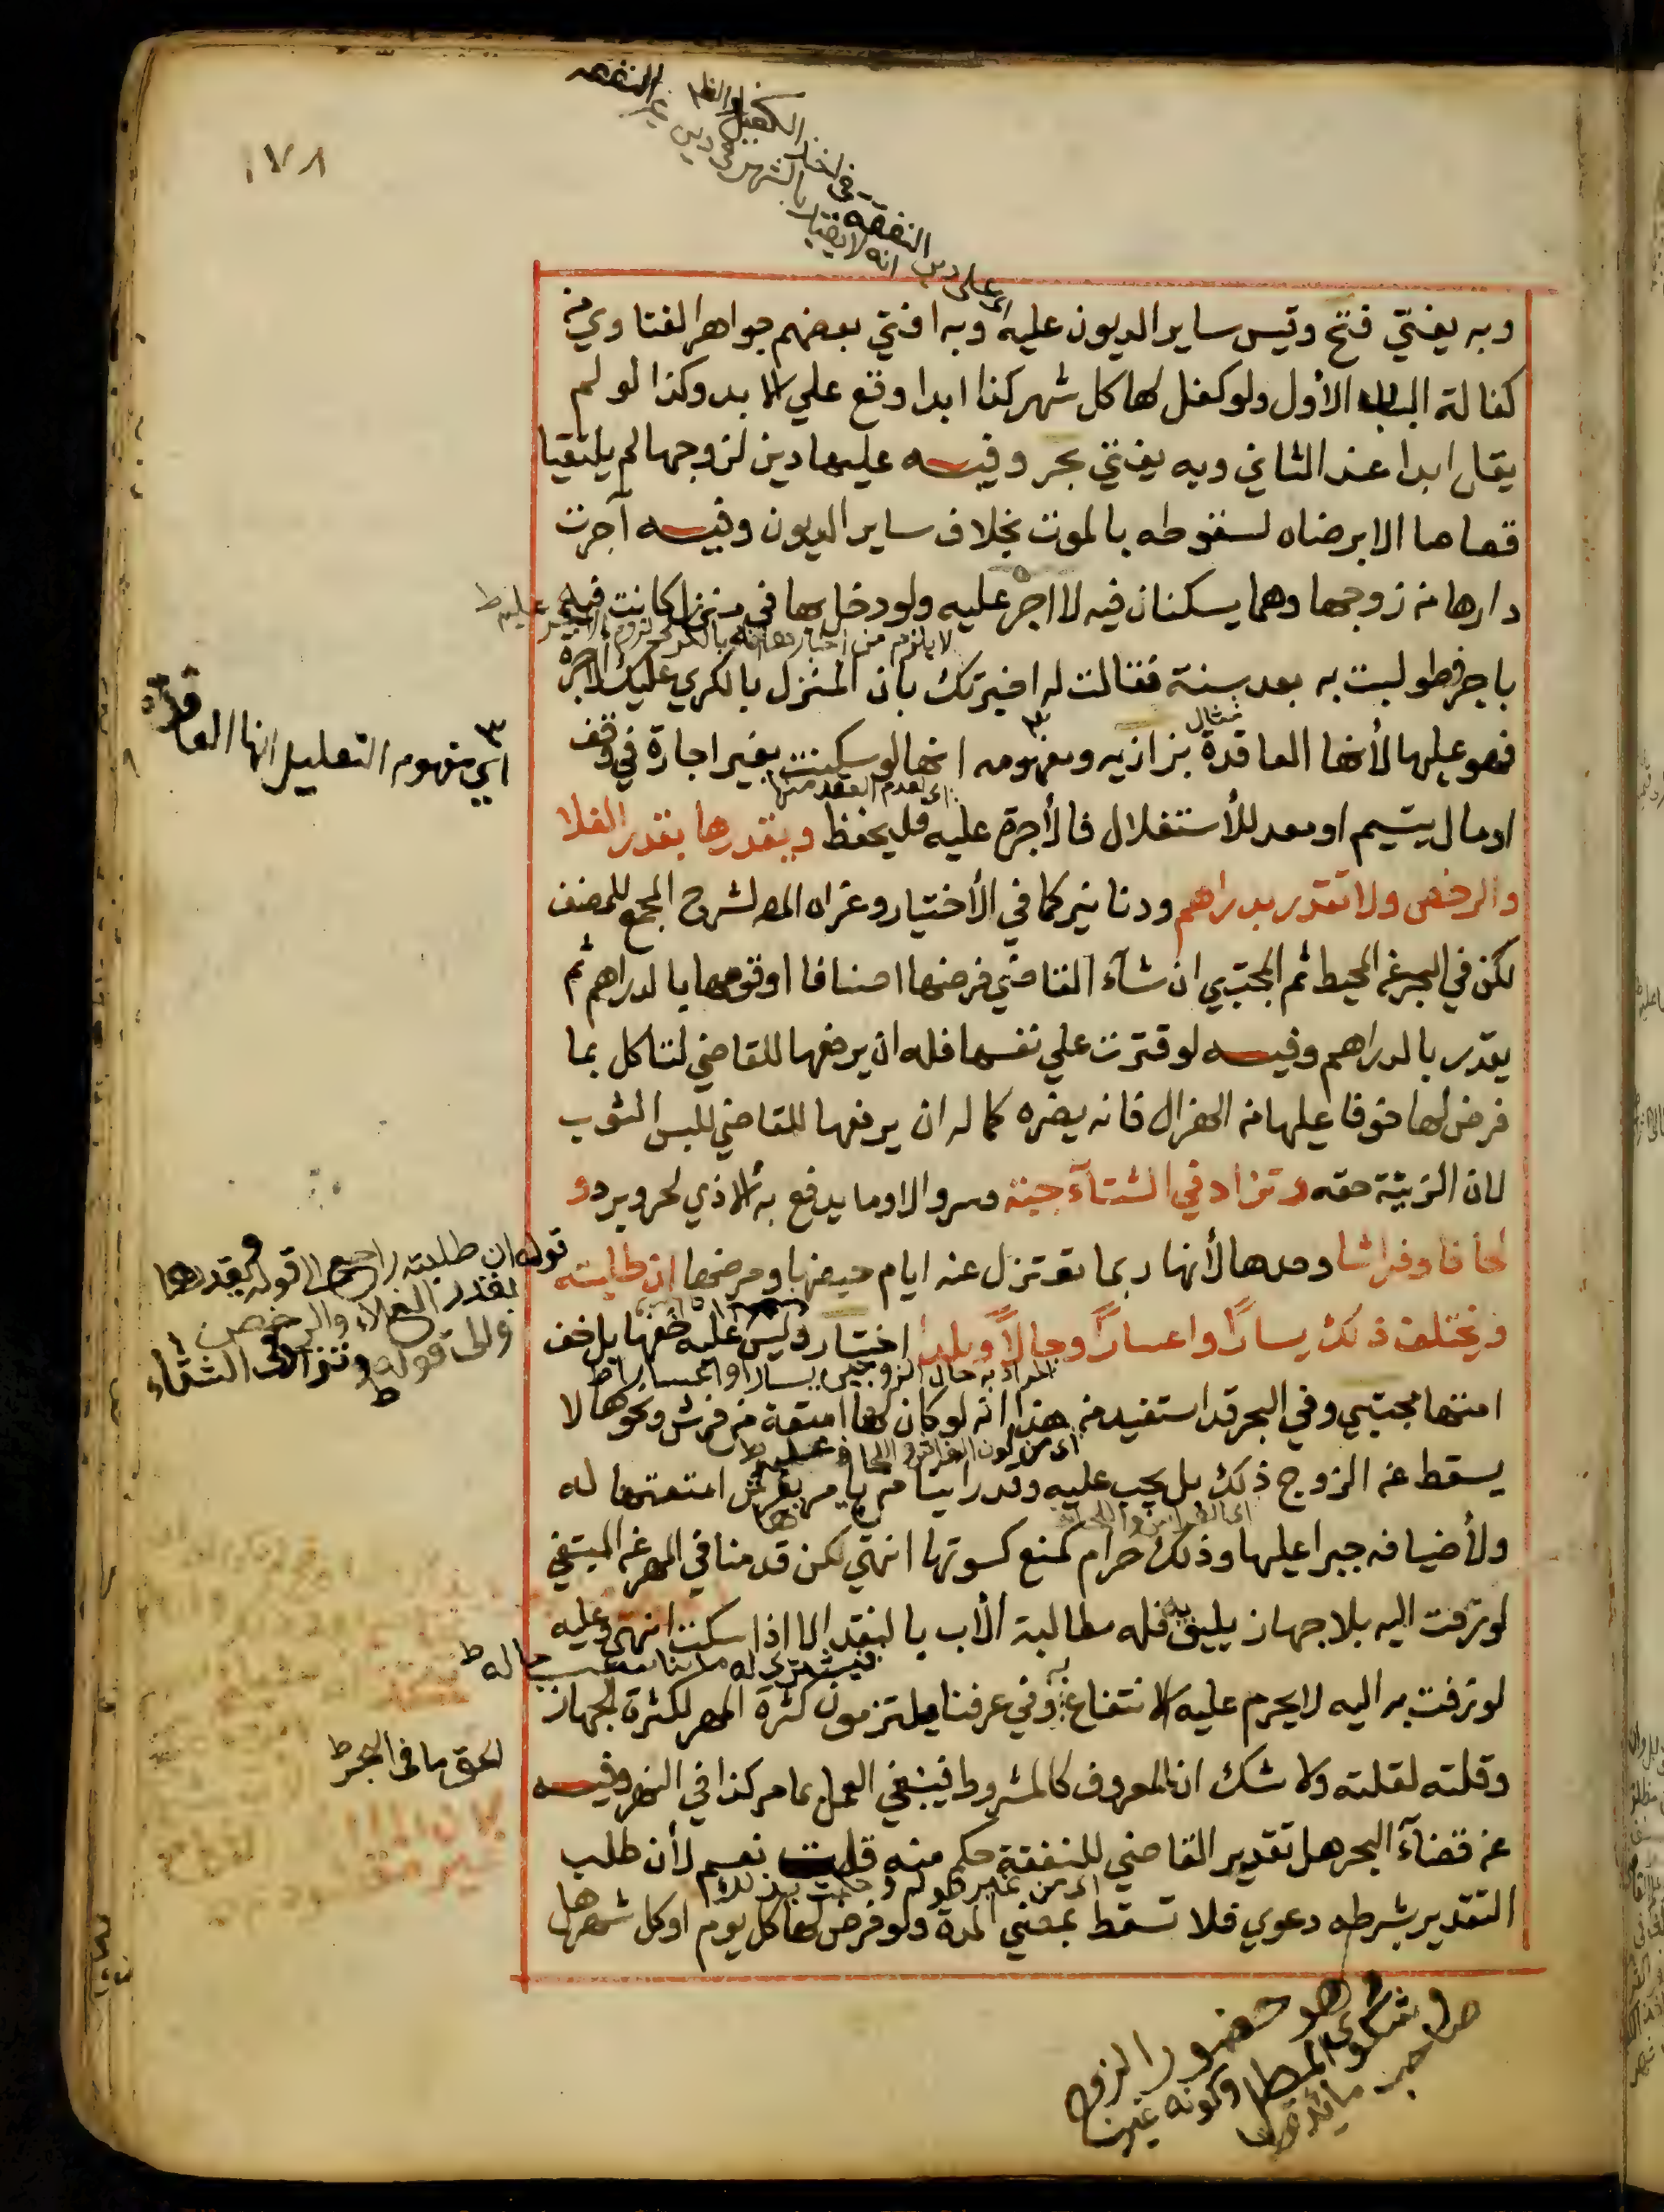 ١٧٨
وبه يفتي فتح وقيس ساير الديون عليه وبه افتي بعضهم جواهر الفتاوي من
كفالة الباب الأول ولو كفل لها كل شهر كذا ابدا وقع علي الابد وكذا لو لم
يقل ابدا عند الثاني وبه يفتي بحر وفيه عليها دين لزوجها لم يلتقيا
قصاصا الا برضاه لسقوطه بالموت بخلاف ساير الديون وفيه آجرت
دارها من زوجها وهما يسكنان فيه لا اجر عليه ولو دخل بها في منزل كانت فيه
باجر فطولبت به بعد سنة فقالت له اخبرتك بان المنزل بالكري عليك الاجرة
فهو عليها لأنها العاقدة بزازيه ومفهومه انها لو سكنت بغير اجارة في وقف
او مال يتيم او معد للأستغلال فالأجرة عليه فليحفظ ويقدرها بقدر الغلا
والرخص ولا تقدر بدراهم ودنانير كما في الأختيار وعزاه المص لشرح المجمع للمصنف
لكن في البحر عن المحيط ثم المجتبي ان شآء القاضي فرضها اصنافا او قومها بالدراهم ثم
يقدر بالدراهم وفيه لو قترت علي نفسها فله ان يرفعها للقاضي لتاكل مما
فرض لها خوفا عليها من الهزال فانه يضره كما له ان يرفعها للقاضي للبس الثوب
لان الزينة حقه وتزاد في الشتآء جبة وسروالا وما يدفع به الاذي لحر وبرد و
لحافا وفراشا وحدها لأنها ربما تعتزل عنه ايام حيضها ومرضها ان طلبته
ويختلف ذلك يسارًا واعسارًا وحالًا وبلدا اختيار وليس عليه خفها بل خف
امتها مجتبي وفي البحر قد استفيد من هذا انه لو كان لها امتعة من فرش ونحوها لا
يسقط عن الزوج ذلك بل يجب عليه وقد راينا من يامرها بفرش امتعتها له
ولأضيافه جبرا عليها وذلك حرام كمنع كسوتها انتهي لكن قدمنا في المهر عن المبتغي
لو زفت اليه بلا جهاز يليق به فله مطالبة الأب بالنقد الا اذا سكت انتهي وعليه
لو زفت به اليه لا يحرم عليه الانتفاع به وفي عرفنا يلتزمون كثرة المهر لكثرة الجهاز
وقلته لقلته ولا شك ان المعروف كالمشروط فينبغي العمل بما مر كذا في النهر وفيه
عن قضآء البحر هل تقدير القاضي للنفقة حكم منه قلت نعم لأن طلب
التقدير بشرطه دعوي فلا تسقط بمضي المدة ولو فرض لها كل يوم او كل شهر هل
اي علي دين النفقه
٣ اي مفهوم التعليل انها العاقدة
اي لعدم العقد منها
قوله ان طلبته راجع الى قوله ويقدرها
بقدر الغلاء والرخص
والى قوله وتزاد فى الشتاء ط
المراد به حال الزوجين يسارا واعسارا ط
الحق ما فى البحر ط
وهو حضور الزوج